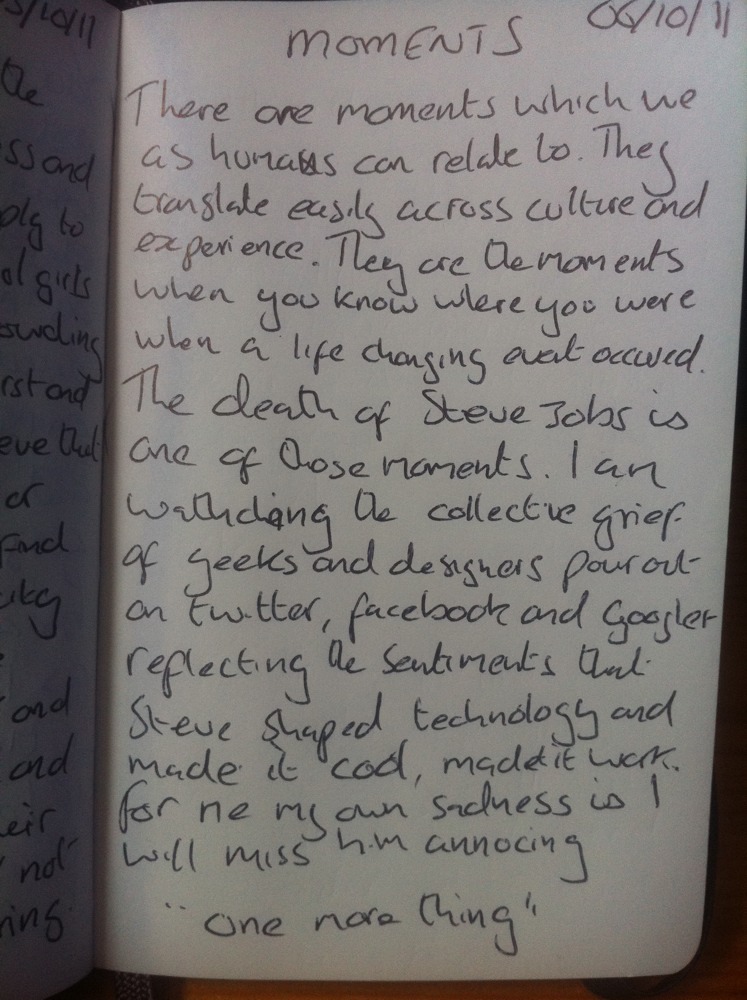 5/10/11
the
ss and
ply to
ol girls
rst and
eve that
or
Find
and
and
eir
not
ring
MOMENTS 06/10/11
There are moments which we
as humans can relate to. They
translate easily across culture and
experience. They are the moments
when you know where you were
when a life changing event occured.
The death of Steve Jobs is
one of those moments. I am
wathching the collective grief
of geeks and designers pour out
on twitter, facebook and Google+
reflecting the sentiments that
Steve shaped technology and
made it cool, made it work.
for me my own sadness is I
will miss him annocing
"one more thing"